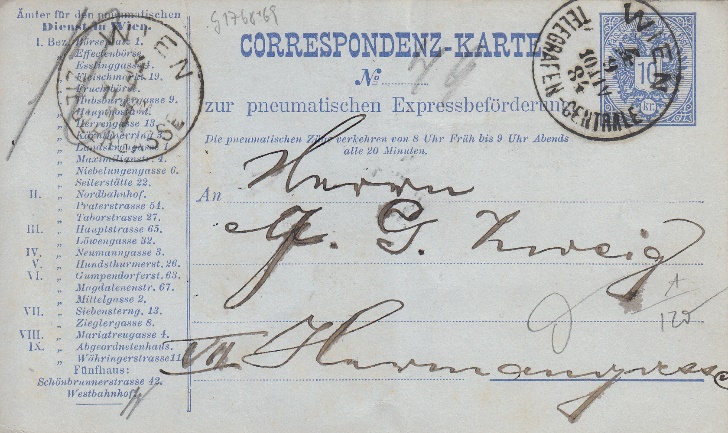 Ämter für den pneumatischen
Dienst in Wien.
I. Bez. Börseplatz 1.
„ Effectenbörse.
„ Esslinggasse 4.
„ Fleischmarkt 19.
„ Fruchtbörse.
„ Habsburgergasse 9.
„ Hauptpostamt.
„ Herrengasse 13.
„ Kärnthnerring
„ Landskrongasse 1
„ Maximilianstr. 4.
„ Niebelungengasse 6.
„ Seilerstätte 22.
II. „ Nordbahnhof.
„ Praterstrasse 54.
„ Taborstrasse 27.
III. „ Hauptstrasse 65.
„ Löwengasse 32.
IV. „ Neumanngasse 3.
V. „ Hundsthurmerst. 26.
VI. „ Gumpendorferst. 63.
„ Magdalenenstr. 67.
„ Mittelgasse 2.
VII. „ Siebensterng. 13.
„ Zieglergasse 8.
VIII. „ Mariatreugasse 4.
IX. „ Abgeordnetenhaus.
„ Währingerstrasse 11
Fünfhaus:
Schönbrunnerstrasse 42.
Westbahnhof.
WIEN
G1766169
CORRESPONDENZ-KARTE
No
zur pneumatischen Expressbeförderung.
Die pneumatischen Züge verkehren von 8 Uhr Früh bis 9 Uhr Abends
alle 20 Minuten.
WIEN
TELEGRAFEN CENTRALE
10
kr.
An
Herrn
G. Zweig
VII Hermangasse
A
120